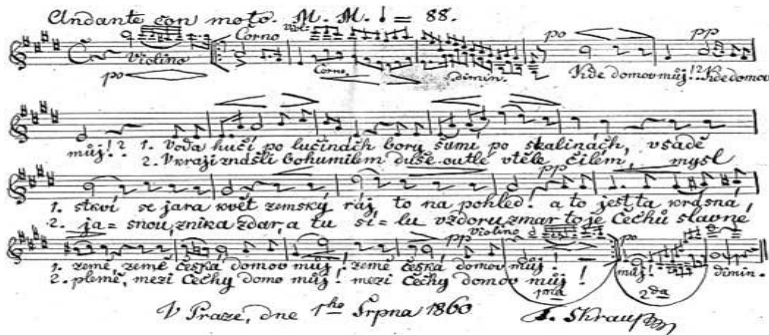 Andante con moto. M. M. ♩ = 88.
Violino Corno Viol:
po Corno. dimin. po pp
Kde domov můj!? Kde domov
můj!? 1. Voda hučí po lučinách bory šumí po skalinách, v sadě
2. V kraji znášli bohumilém duše outlé v těle čilém, mysl
1. stkví se jara květ zemský ráj to na pohled! a to jest ta krásná,
2. ja=snou, znik a zdar, a tu sí=lu vzdoru zmar to je Čechů slavné
pp Violino po
1. země, země česká domov můj, země česká domov můj! můj! dimin.
2. plémě, mezi Čechy domov můj! mezi Čechy domov můj!
1ma 2da
V Praze, dne 1ho Srpna 1860 F. Škroup